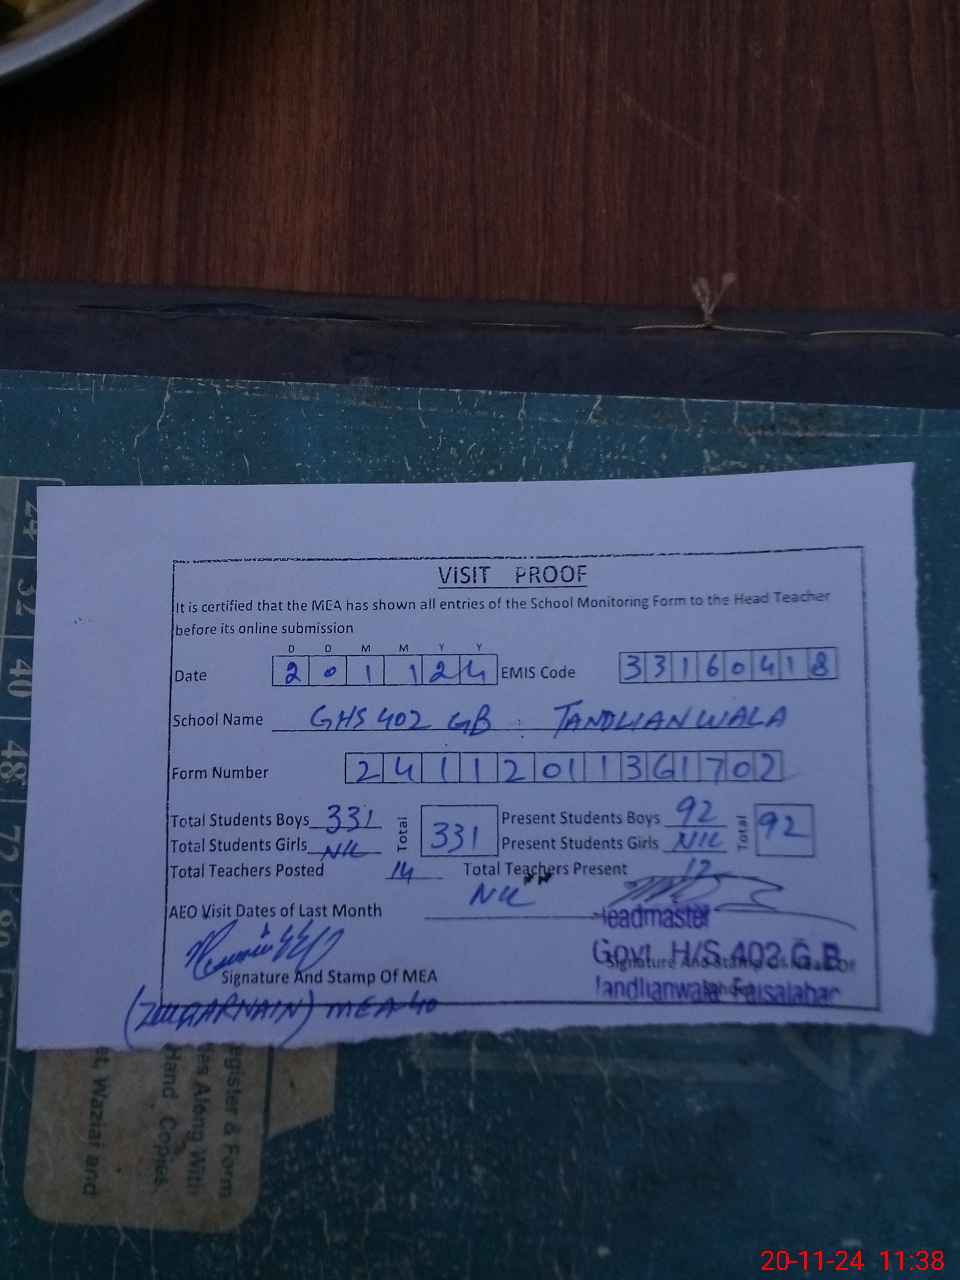 VISIT PROOF
It is certified that the MEA has shown all entries of the School Monitoring Form to the Head Teacher
before its online submission
D D M M Y Y
Date 2 0 1 1 2 4 EMIS Code 3 3 1 6 0 4 1 8
School Name GHS 402 GB : TANDLIANWALA
Form Number 2 4 1 1 2 0 1 1 3 6 1 7 0 2
Total Students Boys 331 Total 331 Present Students Boys 92 Total 92
Total Students Girls NIL Present Students Girls NIL
Total Teachers Posted 14 Total Teachers Present 12
AEO Visit Dates of Last Month NIL
Headmaster
Govt. H/S 402 G.B
Tandlianwala Faisalabad
Signature And Stamp Of MEA
Signature And Stamp Of Head Of
(ZULQARNAIN) MEA 40
24
32
40
48
72
80
egister & Form
es Along With
Hand Copies,
et, Waziat and
20-11-24 11:38